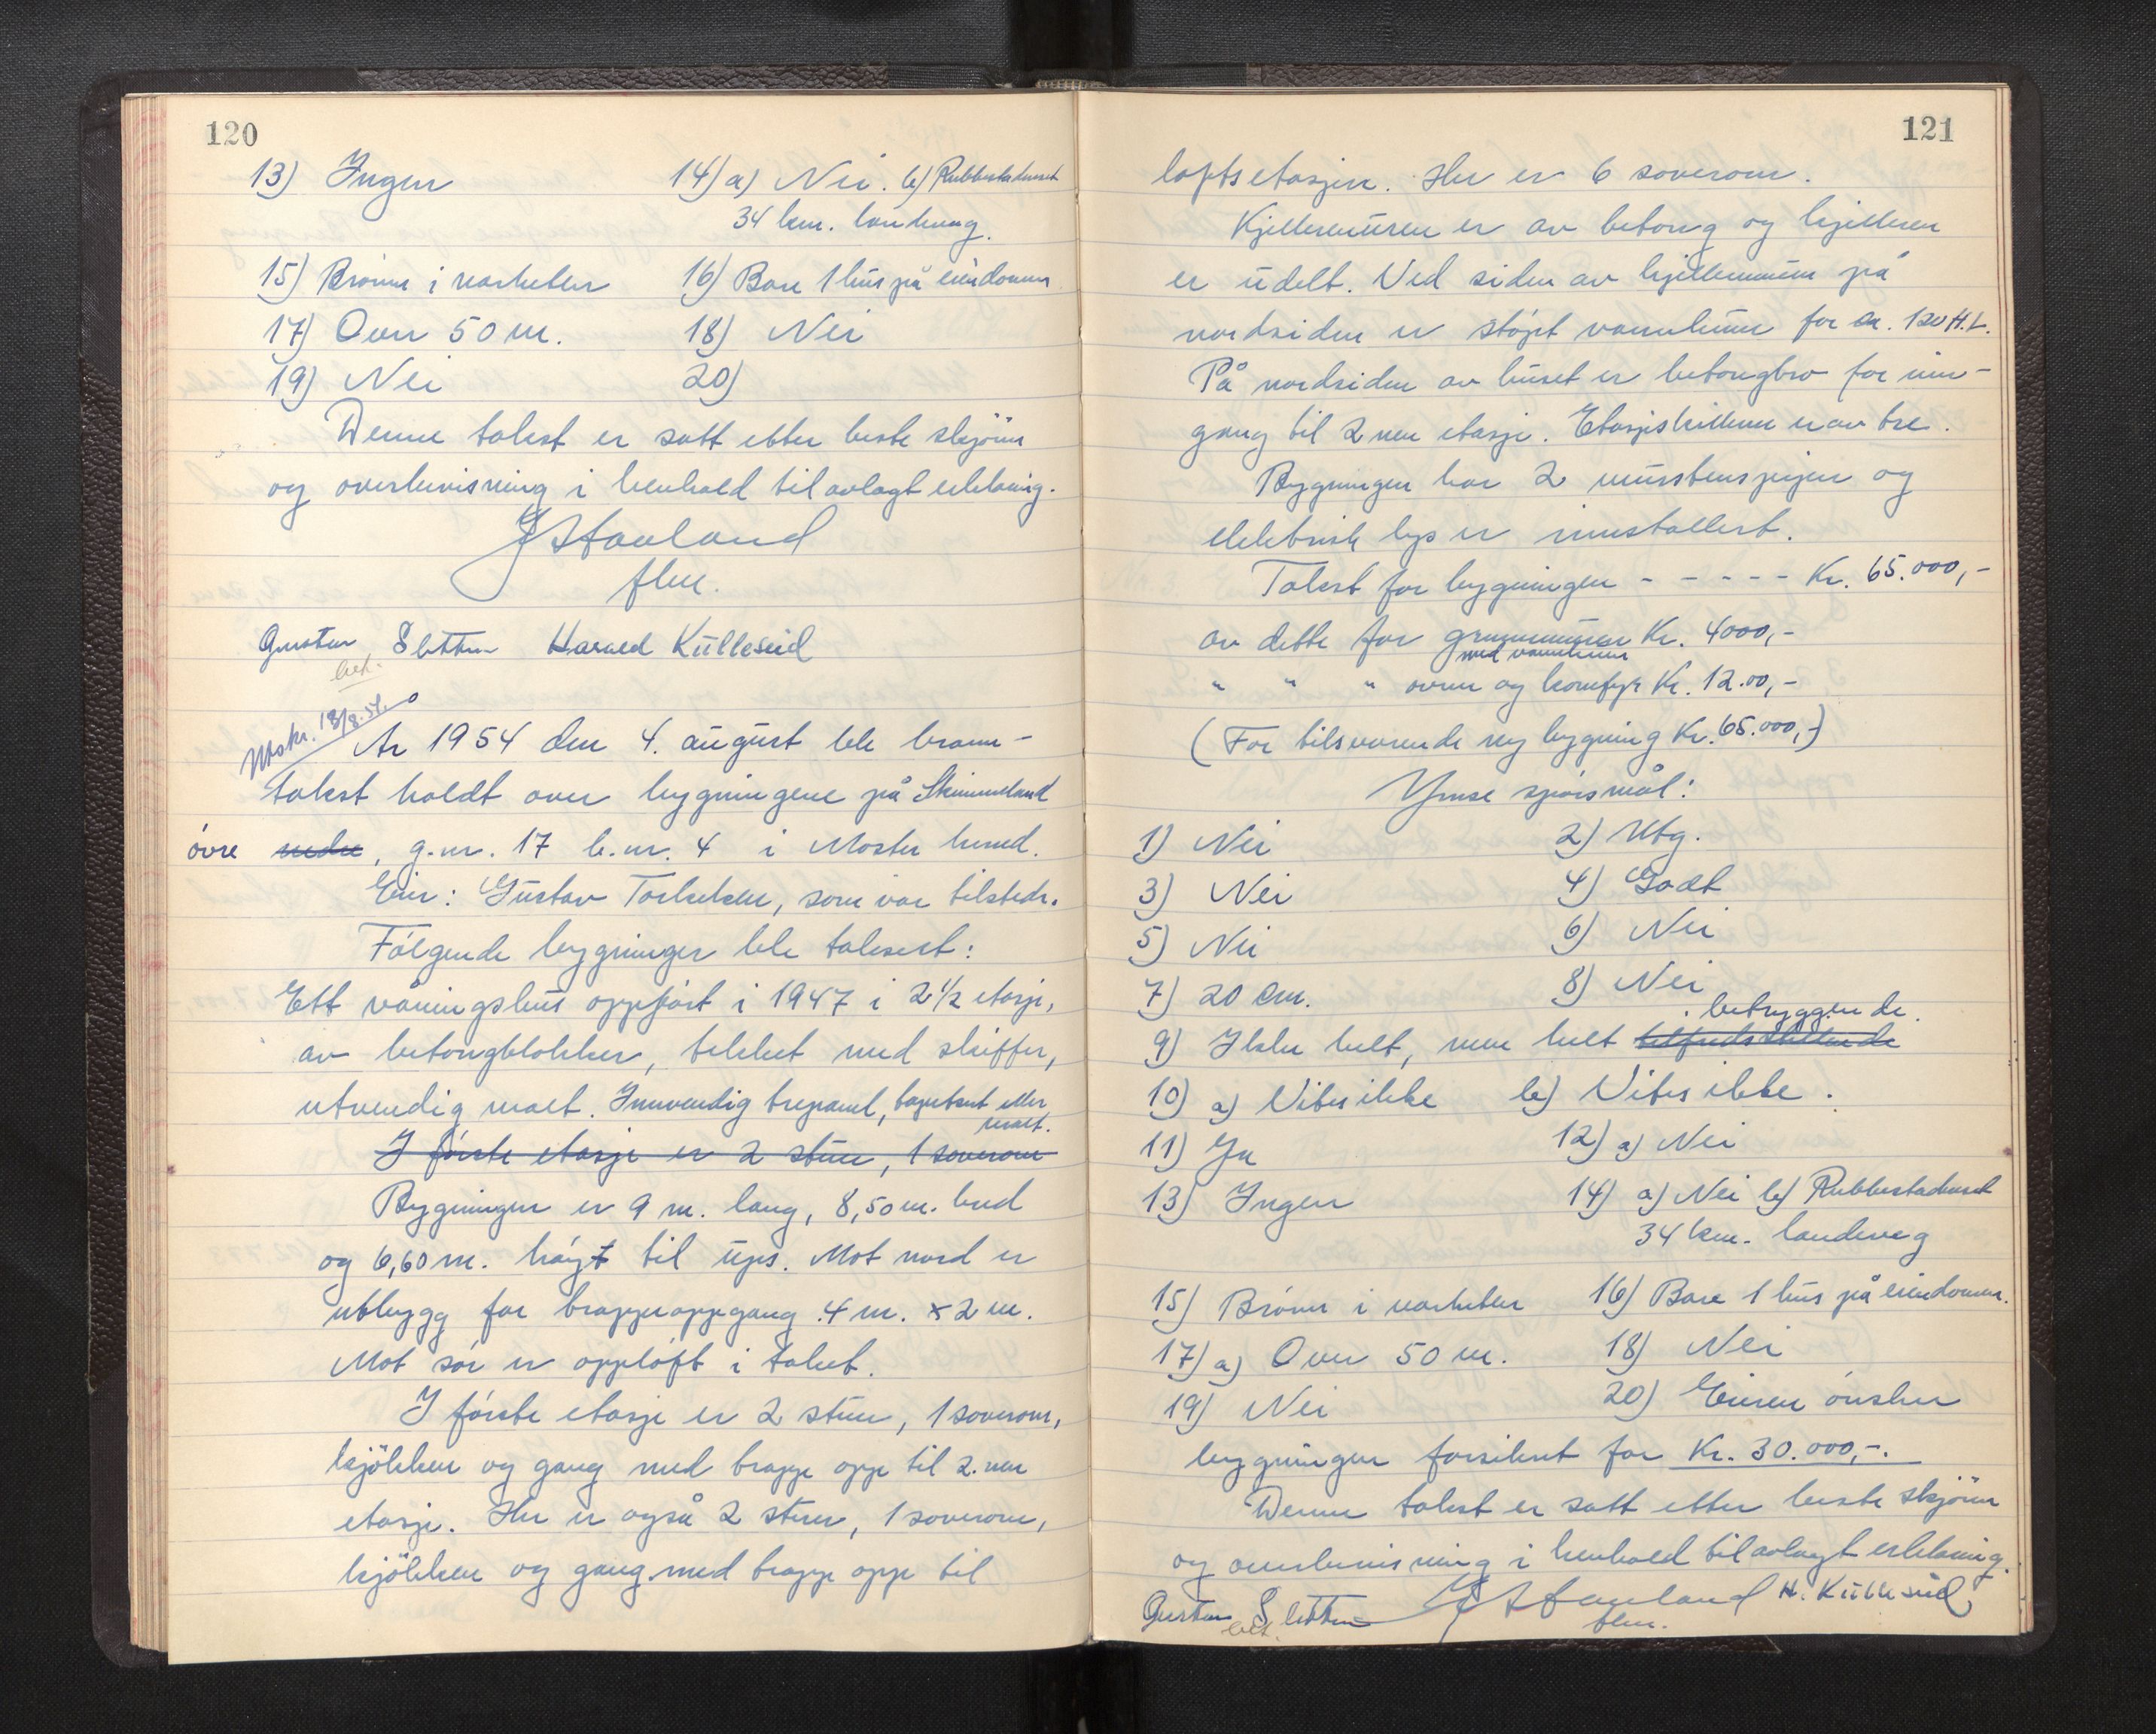 120
13) Ingen 14) a) Nei. b) Rubbestadneset
34 km. landeveg.
15) Brönn i nærheten 16) Bare 1 hus på eiendommen
17) Over 50 m. 18) Nei
19) Nei 20)
Denne takst er satt etter beste skjönn
og overbevisning i henhold til avlagt erklæring.
J Stavland
flm.
Gustav Sletten Harald Kulleseid
bet.
Utskr. 18/8.54.
År 1954 den 4. august ble brann-
takst holdt over bygningene på Skimmeland
övre nedre, g.nr. 17 b.nr. 4 i Moster herred.
Eier: Gustav Torkelsen, som var tilstede.
Fölgende bygninger ble taksert:
Ett våningshus oppfört i 1947 i 2 1/2 etasje,
av betongblokker, tekket med skiffer,
utvendig malt. Innvendig trepanel, tapetsert eller
malt.
I förste etasje er 2 stuer, 1 soverom
Bygningen er 9 m. lang, 8,50 m. bred
og 6,60 m. höyt til ups. Mot nord er
utbygg for trappeoppgang 4 m. x 2 m.
Mot sör er opplöft i taket.
I förste etasje er 2 stuer, 1 soverom,
kjökken og gang med trapp opp til 2. nen
etasje. Her er også 2 stuer, 1 soverom,
kjökken og gang med trapp opp til
121
loftsetasjen. Her er 6 soverom.
Kjellermuren er av betong og kjelleren
er udelt. Ved siden av kjellermuren på
nordsiden er stöpt vannkum for ca. 120 H.L.
På nordsiden av huset er betongbro for inn-
gang til 2 nen etasje. Etasjeskillene er av tre.
Bygningen har 2 murstenspiper og
elektrisk lys er innstallert.
Takst for bygningen - - - - - Kr. 65.000,-
av dette for grunnmuren Kr. 4000,-
med vannkum
" " " ovner og komfyr Kr. 12.00,-
(For tilsvarende ny bygning Kr. 65.000,-)
Ymse spörsmål:
1) Nei 2) Utg.
3) Nei 4) Godt
5) Nei 6) Nei
7) 20 cm. 8) Nei
betryggende.
9) Ikke helt, men helt tilfredsstillende
10) a) Vites ikke b) Vites ikke.
11) Ja 12) a) Nei
13) Ingen 14) a) Nei b) Rubbestadneset
34 km. landeveg
15) Brönn i nærheten 16) Bare 1 hus på eiendommen.
17) a) Over 50 m. 18) Nei
19) Nei 20) Eieren önsker
bygningen forsikret for Kr. 30.000,-.
Denne takst er satt etter beste skjönn
og overbevisning i henhold til avlagt erklæring.
Gustav Sletten J Stavland H. Kulleseid
bet. flm.